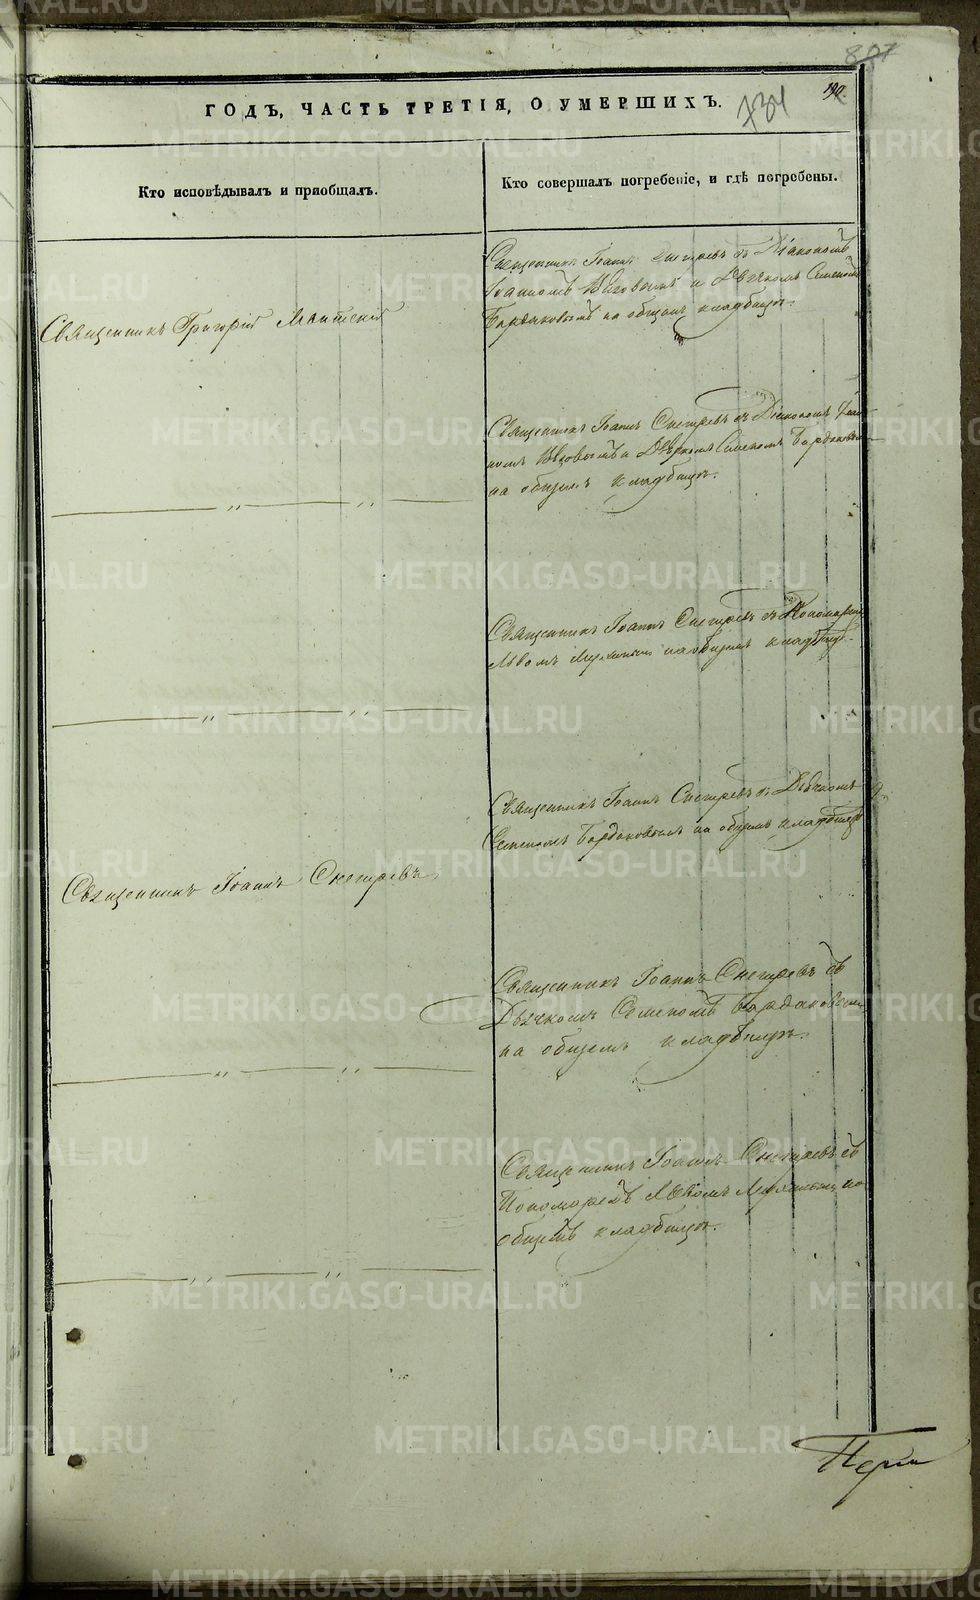 807
190.
ГОДЪ, ЧАСТЬ ТРЕТІЯ, О УМЕРШИХЪ.
734
Кто исповѣдывалъ и пріобщалъ.
Кто совершалъ погребеніе, и гдѣ погребены.
Священникъ Іоаннъ Снегиревъ съ Діакономъ
Іоанномъ и Дьячкомъ Семеномъ
Бардаковымъ на общемъ кладбищѣ.
Священникъ Григорій
Священникъ Іоаннъ Снегиревъ съ Діакономъ Іоан-
номъ и Дьячкомъ Семеномъ Бардаковымъ
на общемъ кладбищѣ.
— „ — „ —
Священникъ Іоаннъ Снегиревъ съ Пономаремъ
Львомъ на общемъ кладбищѣ.
— „ — „ —
Священникъ Іоаннъ Снегиревъ съ Дьячкомъ
Семеномъ Бардаковымъ на общемъ кладбищѣ
Священникъ Іоаннъ Снегиревъ
Священникъ Іоаннъ Снегиревъ съ
Дьячкомъ Семеномъ Бардаковымъ
на общемъ кладбищѣ.
— „ — „ —
Священникъ Іоаннъ Снегиревъ съ
Пономаремъ Львомъ на
общемъ кладбищѣ.
— „ — „ —
METRIKI.GASO-URAL.RU